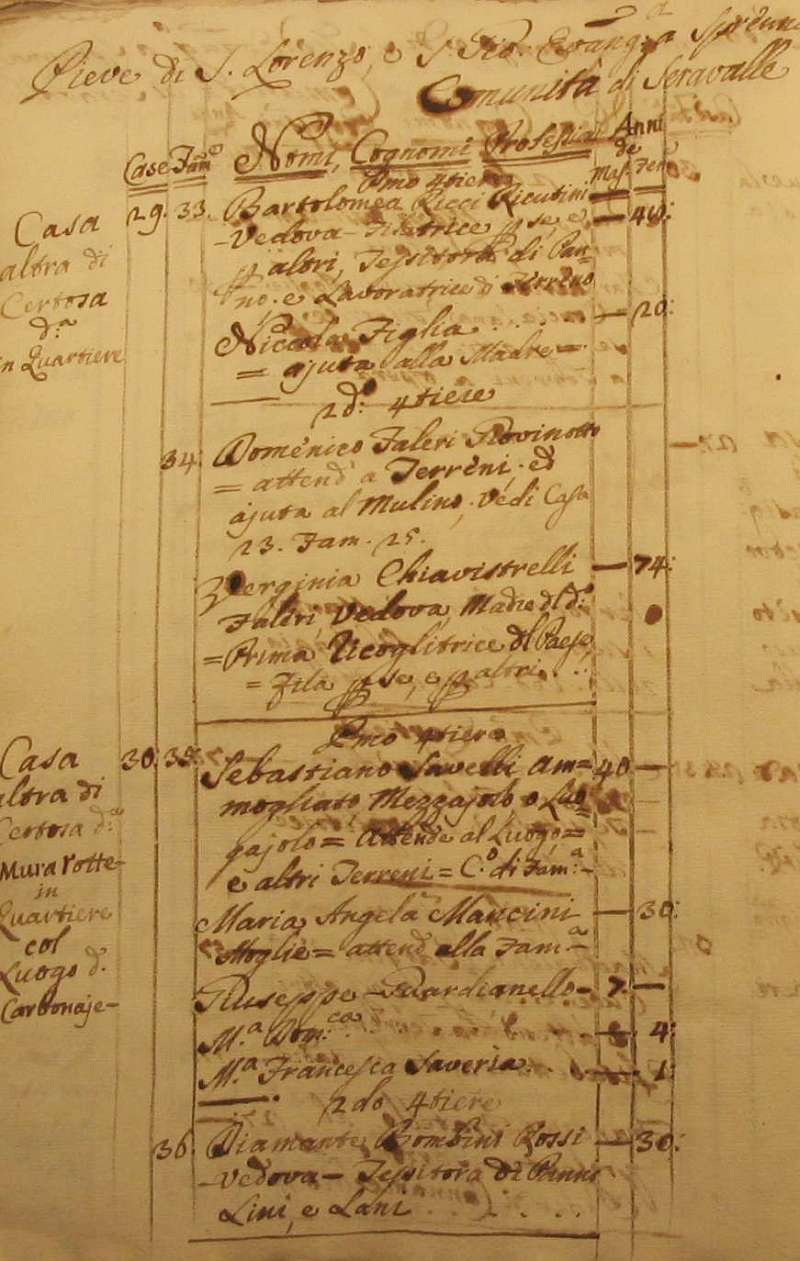 Pieve di S. Lorenzo, e S. Gio: Evang.a
Comunità di Seravalle
Case Fam.e Nomi, Cognomi Professioni Anni
de
Mas. Fem.
Pmo 4tiere
Casa 29. 33. Bartolomea Ricci Ricutini — 40:
altra di - Vedova - Filatrice p se, e
Certosa p altri, Tessitora di Pan=
d.a no, e Lavoratrice di Terreno
in Quartiere Niccola Figlia . . . — 20:
= ajuta alla Madre =
2d.o 4tiere
34: Domenico Faleri Rovinotto
= attend.e a Terreni, ed
ajuta al Mulino. Vedi Casa
23. Fam. 25.
Verginia Chiavistrelli — 74:
Faleri, Vedova, Madre dl d.o
= Prima Ricoglitrice dl Paese,
= Fila p se, e p altri . . .
Pmo 4tiere
Casa 30. 35. Sebastiano Savelli Am= 40 —
altra di mogliato Mezzajolo o Luo
Certosa d.a gajolo = Attende al Luogo =
Mura rotte- e altri Terreni = C.o di Fam.a -
in
Quartiere Maria Angela Mancini — 30:
col Moglie = attend.e alla Fam.a -
Luogo d.o
Carbonaje- Giuseppe - Guardianello - 7. —
M.a Dom.ca . . — 4:
M.a Francesca Saveria . . — 1:
2do 4tiere
36. Diamante Bombini Rossi — 30:
- Vedova - Tessitora di Panni
Lini, e Lani . . . .